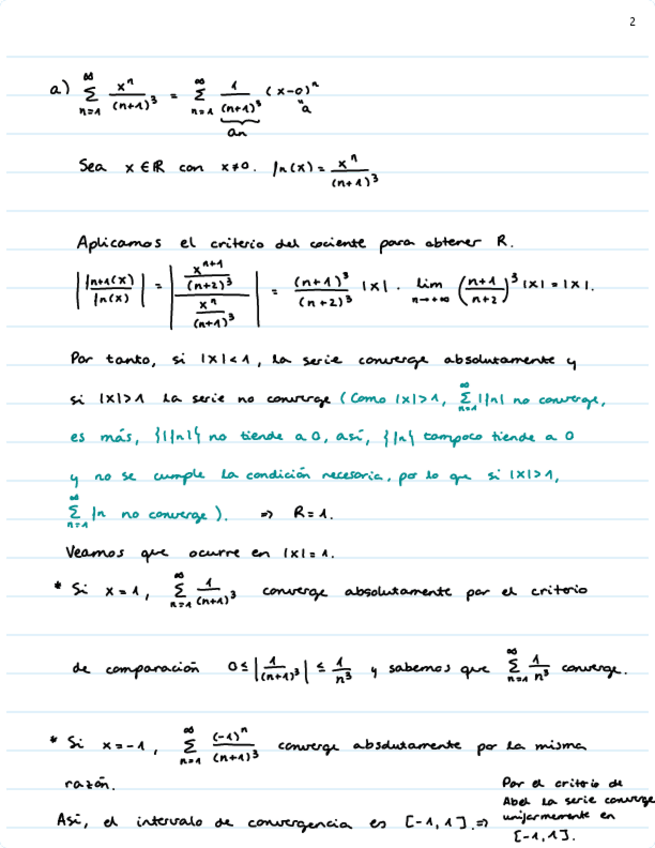 2
a) ∞ Σ n=1 x^n/(n+1)^3 = ∞ Σ n=1 1/(n+1)^3 (x-0)^n
an " a
Sea x ∈ ℝ con x≠0. fn(x) = x^n/(n+1)^3
Aplicamos el criterio del cociente para obtener R.
|fn+1(x)/fn(x)| = |(x^(n+1)/(n+2)^3)/(x^n/(n+1)^3)| = (n+1)^3/(n+2)^3 |x|. lim n→+∞ ((n+1)/(n+2))^3 |x| = |x|.
Por tanto, si |x|<1, la serie converge absolutamente y
si |x|>1 la serie no converge (Como |x|>1, ∞ Σ n=1 |fn| no converge,
es más, {|fn|} no tiende a 0, así, {fn} tampoco tiende a 0
y no se cumple la condición necesaria, por lo que si |x|>1,
∞ Σ n=1 fn no converge). ⇒ R=1.
Veamos que ocurre en |x|=1.
* Si x=1, ∞ Σ n=1 1/(n+1)^3 converge absolutamente por el criterio
de comparación 0 ≤ |1/(n+1)^3| ≤ 1/n^3 y sabemos que ∞ Σ n=1 1/n^3 converge.
* Si x=-1, ∞ Σ n=1 (-1)^n/(n+1)^3 converge absolutamente por la misma
razón.
Así, el intervalo de convergencia es [-1,1]. ⇒
Por el criterio de
Abel la serie converge
uniformemente en
[-1,1].